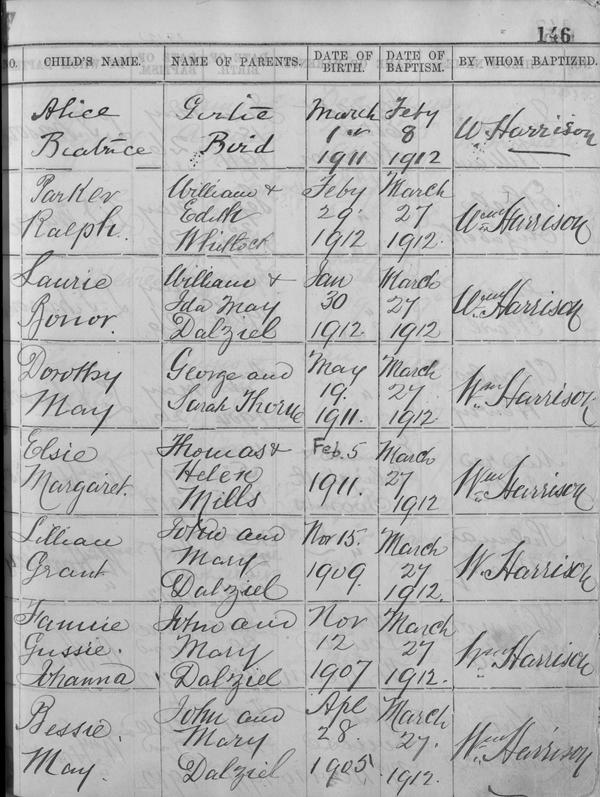 146
NO. CHILD'S NAME. NAME OF PARENTS. DATE OF BIRTH. DATE OF BAPTISM. BY WHOM BAPTIZED.
Alice Gertie March Feby
Beatrice Bird 1st 8 W Harrison
1911 1912
Parker William & Feby March
Ralph. Edith 29. 27 Wm Harrison
Whitlock 1912 1912.
Laurie William & Jan March
Bonor. Ida May 30 27 Wm Harrison
Dalziel 1912. 1912
Dorothy George and May March
May Sarah Thorne 19. 27 Wm Harrison
1911. 1912
Elsie Thomas & Feb. 5 March
Margaret. Helen 1911. 27 Wm Harrison
Mills 1912
Lillian John and Nov 15. March
Grant Mary 1909. 27 W. Harrison
Dalziel 1912.
Fannie John and Nov March
Gussie. Mary 12 27 Wm Harrison
Johanna Dalziel 1907 1912.
Bessie. John and Apl March
May. Mary 28. 27. Wm Harrison
Dalziel 1905 1912.